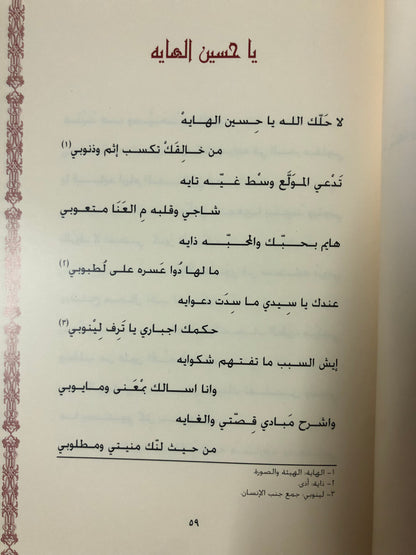 يا حسين الهايه
لا حَلّك الله يا حِسين الهـايهْ
من خالِفَكْ نكسب إثم وذنوبي (١)
تَدْعي المولّع وسْط غيّـه تايه
شـاجي وقلبه مِ العَنَـا متعـوبي
هايم بحبّـك والمحبّـه ذايه
ما لها دُوا عَسره على لُطبوبي (٢)
عندك يا سِيدي ما سِدَت دعوايه
حكمك اجباري يا تَرِف لِينوبي (٣)
إيش السبب ما تفتهم شكوايه
وانا اسالك بمْعنى ومـايـوبي
واشرح مَبادي قِصّتي والغايه
من حيث لنّك منيتي ومطلوبي
١- الهايه: الهيئة والصورة
٢- ذايه: أذى
٣- لينوبي: جمع جنب الإنسان
٥٩